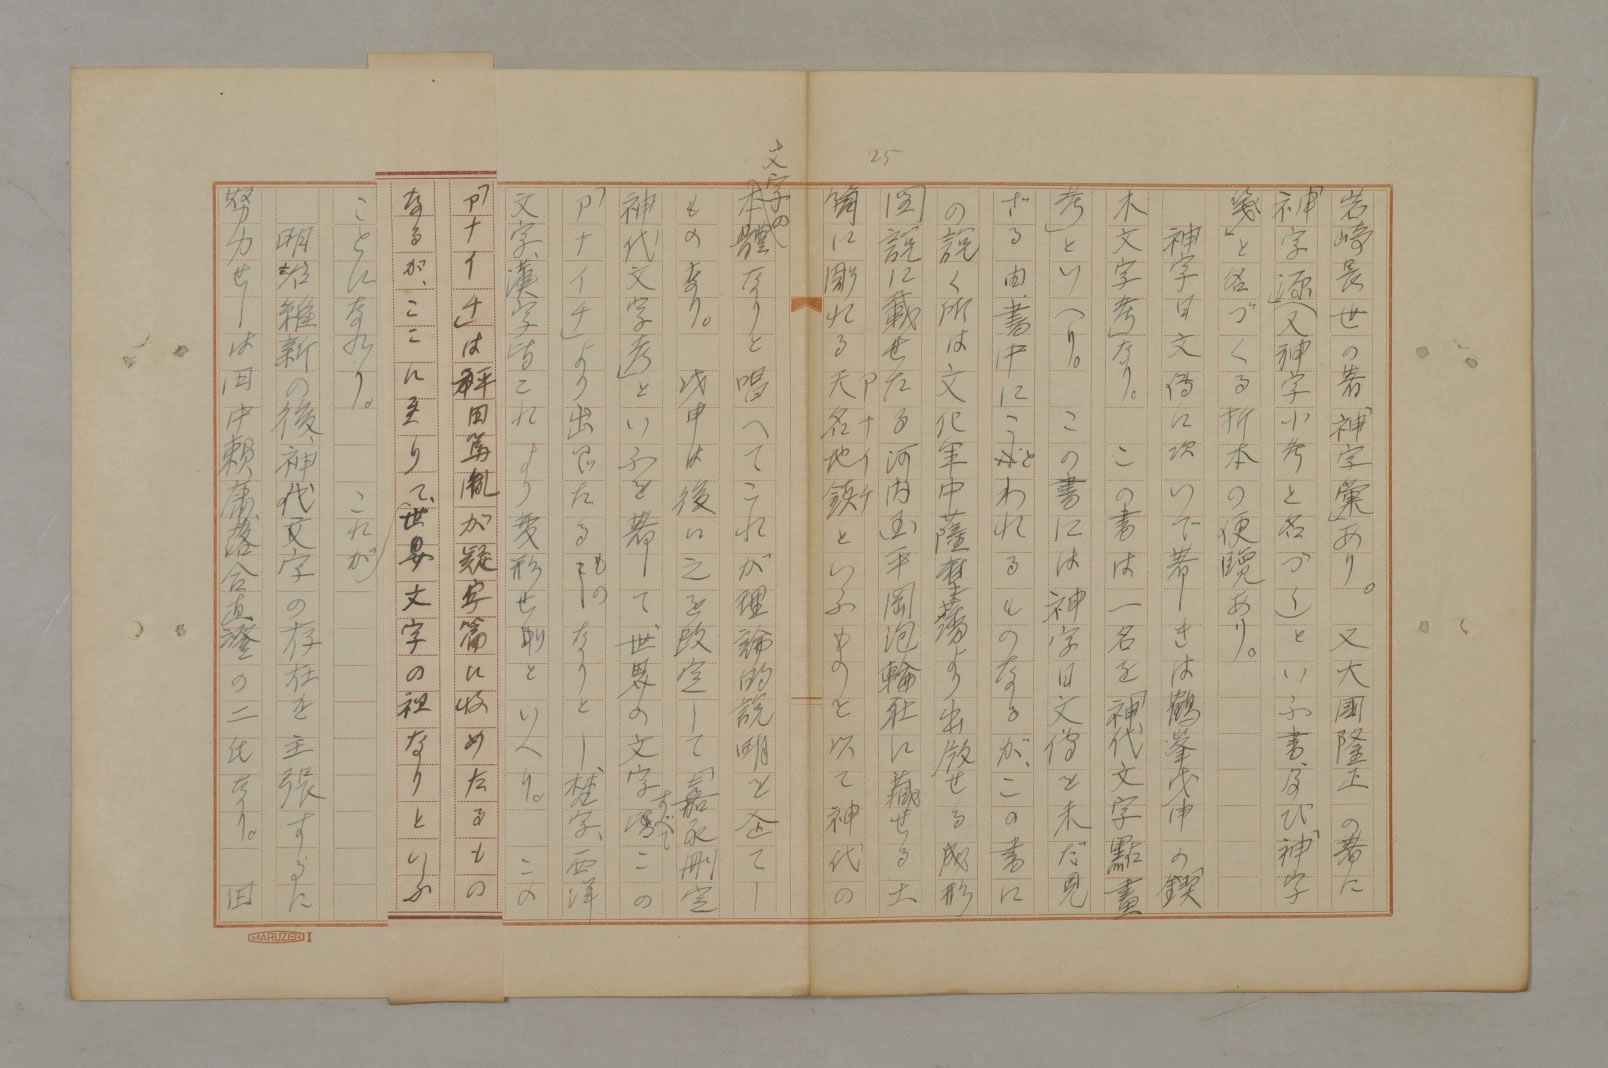 25
岩崎長世の著「神字彙」あり。又大國隆正の著に
「神字源」(又神字小考と名づく)といふ書、及び「神字
箋」と名づくる折本の便覽あり。
神字日文傳に次いで著しきは鶴峯戊申の「鍥
木文字考」なり。この書は一名を「神代文字點畫
考」といへり。この書には神字日文傳を未だ見
ざる由、書中にことわれるものなるが、この書に
の説く所は文化年中薩摩藩より出版せる成形
圖説に載せたる河内国平岡泡輪社に藏せる土
笥に彫れる天名地鎮といふものを以て神代の
アナイチ
文字の
本體なりと唱へてこれが理論的説明を企てし
ものなり。戊申は後に之を改定して「嘉永刪定
神代文字考」といふを著して、世界の文字すべてこの
「アナイチ」より出でたるものなりとし、梵字、西洋
文字、漢字皆これより変形せ刪といへり。この
「アナイチ」は稗田篤胤が疑字篇に收めたるもの
なるが、ここに至りて、世界文字の祖なりといふ
ことになれり。これが
明治維新の後、神代文字の存在を主張するに
努力せしは田中頼庸、落合直澄の二氏なり。田
MARUZEN I